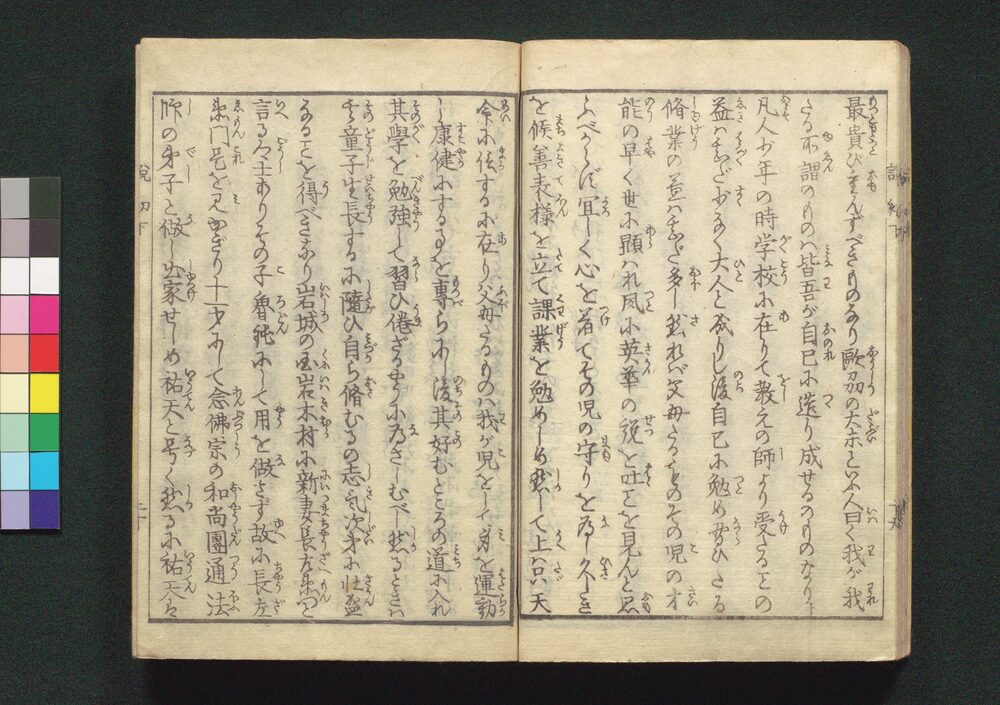 最貴び重んずべきものなり歐羅の大立といふ人曰く我が我
たる所謂のものハ皆吾が自己に造り成せるものなりト
凡人少年の時学校に在りて教えの師より受たることの
益ハ甚だ少なく大人と成りし後自己に勉め学びたる
脩業の益ハ甚だ多し然れバ父母たるものその児の才
能の早く世に顕ハれ夙に英華の説を吐を見んと思
ふべからず宜しく心を着てその児の守りを為し久しき
を候善表様を立て課業を勉めしめ然して上ハ只天
命に任するに在り父母たるものハ我が児をして身を運動
し康健にするを専らにし後其好むところの道に入れ
其學を勉強して習ひ倦ざるやうに為さしむべし然るときハ
その童子生長するに隨ひ自ら脩むるの志氣次才に壮盛
なることを得べきなり岩城の国岩木村に新妻長左衛門と
言る人士ありその子魯鈍にして用を做さず故に長左
衛門是を見かぎり十一才にして念佛宗の和尚團通法
師の弟子と做し出家せしめ祐天と号く然るに祐天ハ